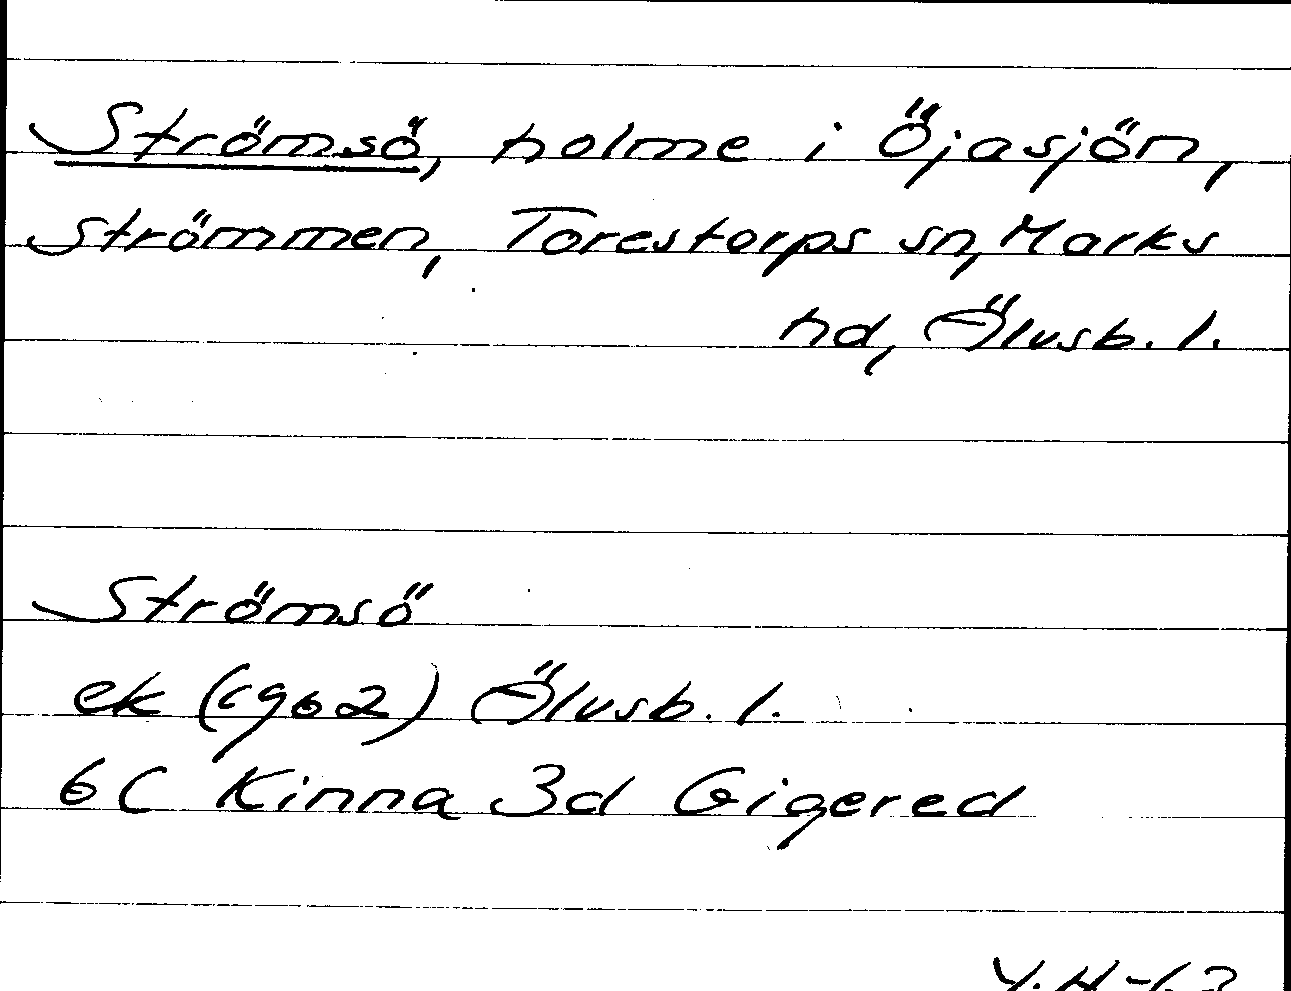 Strömsö, holme i Öjasjön,
Strömmen, Torestorps sn, Marks
hd, Älvsb. l.
Strömsö
ek (1962) Älvsb. l.
6C Kinna 3d Gigered